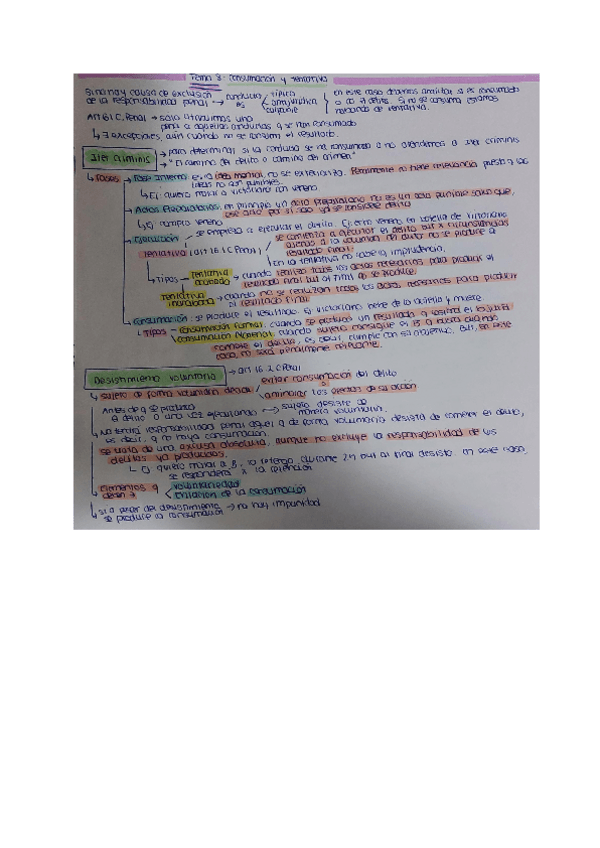 Tema 3: Consumación y tentativa
Si no hay causa de exclusión
de la responsabilidad penal → conducta es
típica
antijurídica
culpable
en este caso debemos analizar si es consumado
o no el delito. Si no se consuma estamos
hablando de tentativa.
Art 61 C. Penal → solo atribuimos una
pena a aquellas conductas q se han consumado
↳ excepciones, aún cuando no se consuma el resultado.
Iter criminis
→ para determinar si la conducta se ha consumado o no atendemos a iter criminis
→ "El camino del delito o camino del crimen"
↳ Fases
Fase Interna: es la idea mental no se exterioriza. Penalmente no tiene relevancia puesto q las
ideas no son punibles.
↳ Ej: quiero matar a Victoriano con veneno
Actos Preparatorios: en principio un acto preparatorio no es un acto punible salvo que,
ese acto por si solo ya se considere delito
↳ Ej: compro veneno
Ejecución → se empieza a ejecutar el delito. Ej: echo veneno en botella de Victoriano
Tentativa (art 16.1 C. Penal)
se comienza a ejecutar el delito pero x circunstancias
ajenas a la voluntad del autor no se produce el
resultado final.
En la tentativa no cabe la imprudencia.
↳ tipos
Tentativa acabada → cuando realizo todos los actos necesarios para producir el
resultado final but al final no se produce.
Tentativa inacabada → cuando no se realizan todos los actos necesarios para producir
el resultado final
Consumación: se produce el resultado. Ej: Victoriano bebe de la botella y muere
↳ Tipos
Consumación Formal: cuando se produce un resultado q
Consumación Material: cuando sujeto consigue el
comete el delito, es decir, cumple con su objetivo. But, en este
caso, no será penalmente relevante.
Desistimiento voluntario → art 16.2 C. Penal
↳ sujeto de forma voluntaria decide
evitar consumación del delito
o
aminorar los efectos de su acción
Antes de q se produzca
el delito o una vez ejecutando → sujeto desiste de
manera voluntaria.
↳ No tendrá responsabilidad penal aquel q de forma voluntaria desista de cometer el delito,
es decir, q no haya consumación.
Se trata de una excusa absolutoria, aunque no excluye la responsabilidad de los
delitos ya producidos.
↳ Ej: quiero matar a B, lo retengo durante 2h but al final desisto. En este caso,
se responderá x la retención
↳ Elementos q
deben →
voluntariedad
evitación de la consumación
↳ si a pesar del desistimiento → no hay impunidad
se produce la consumación